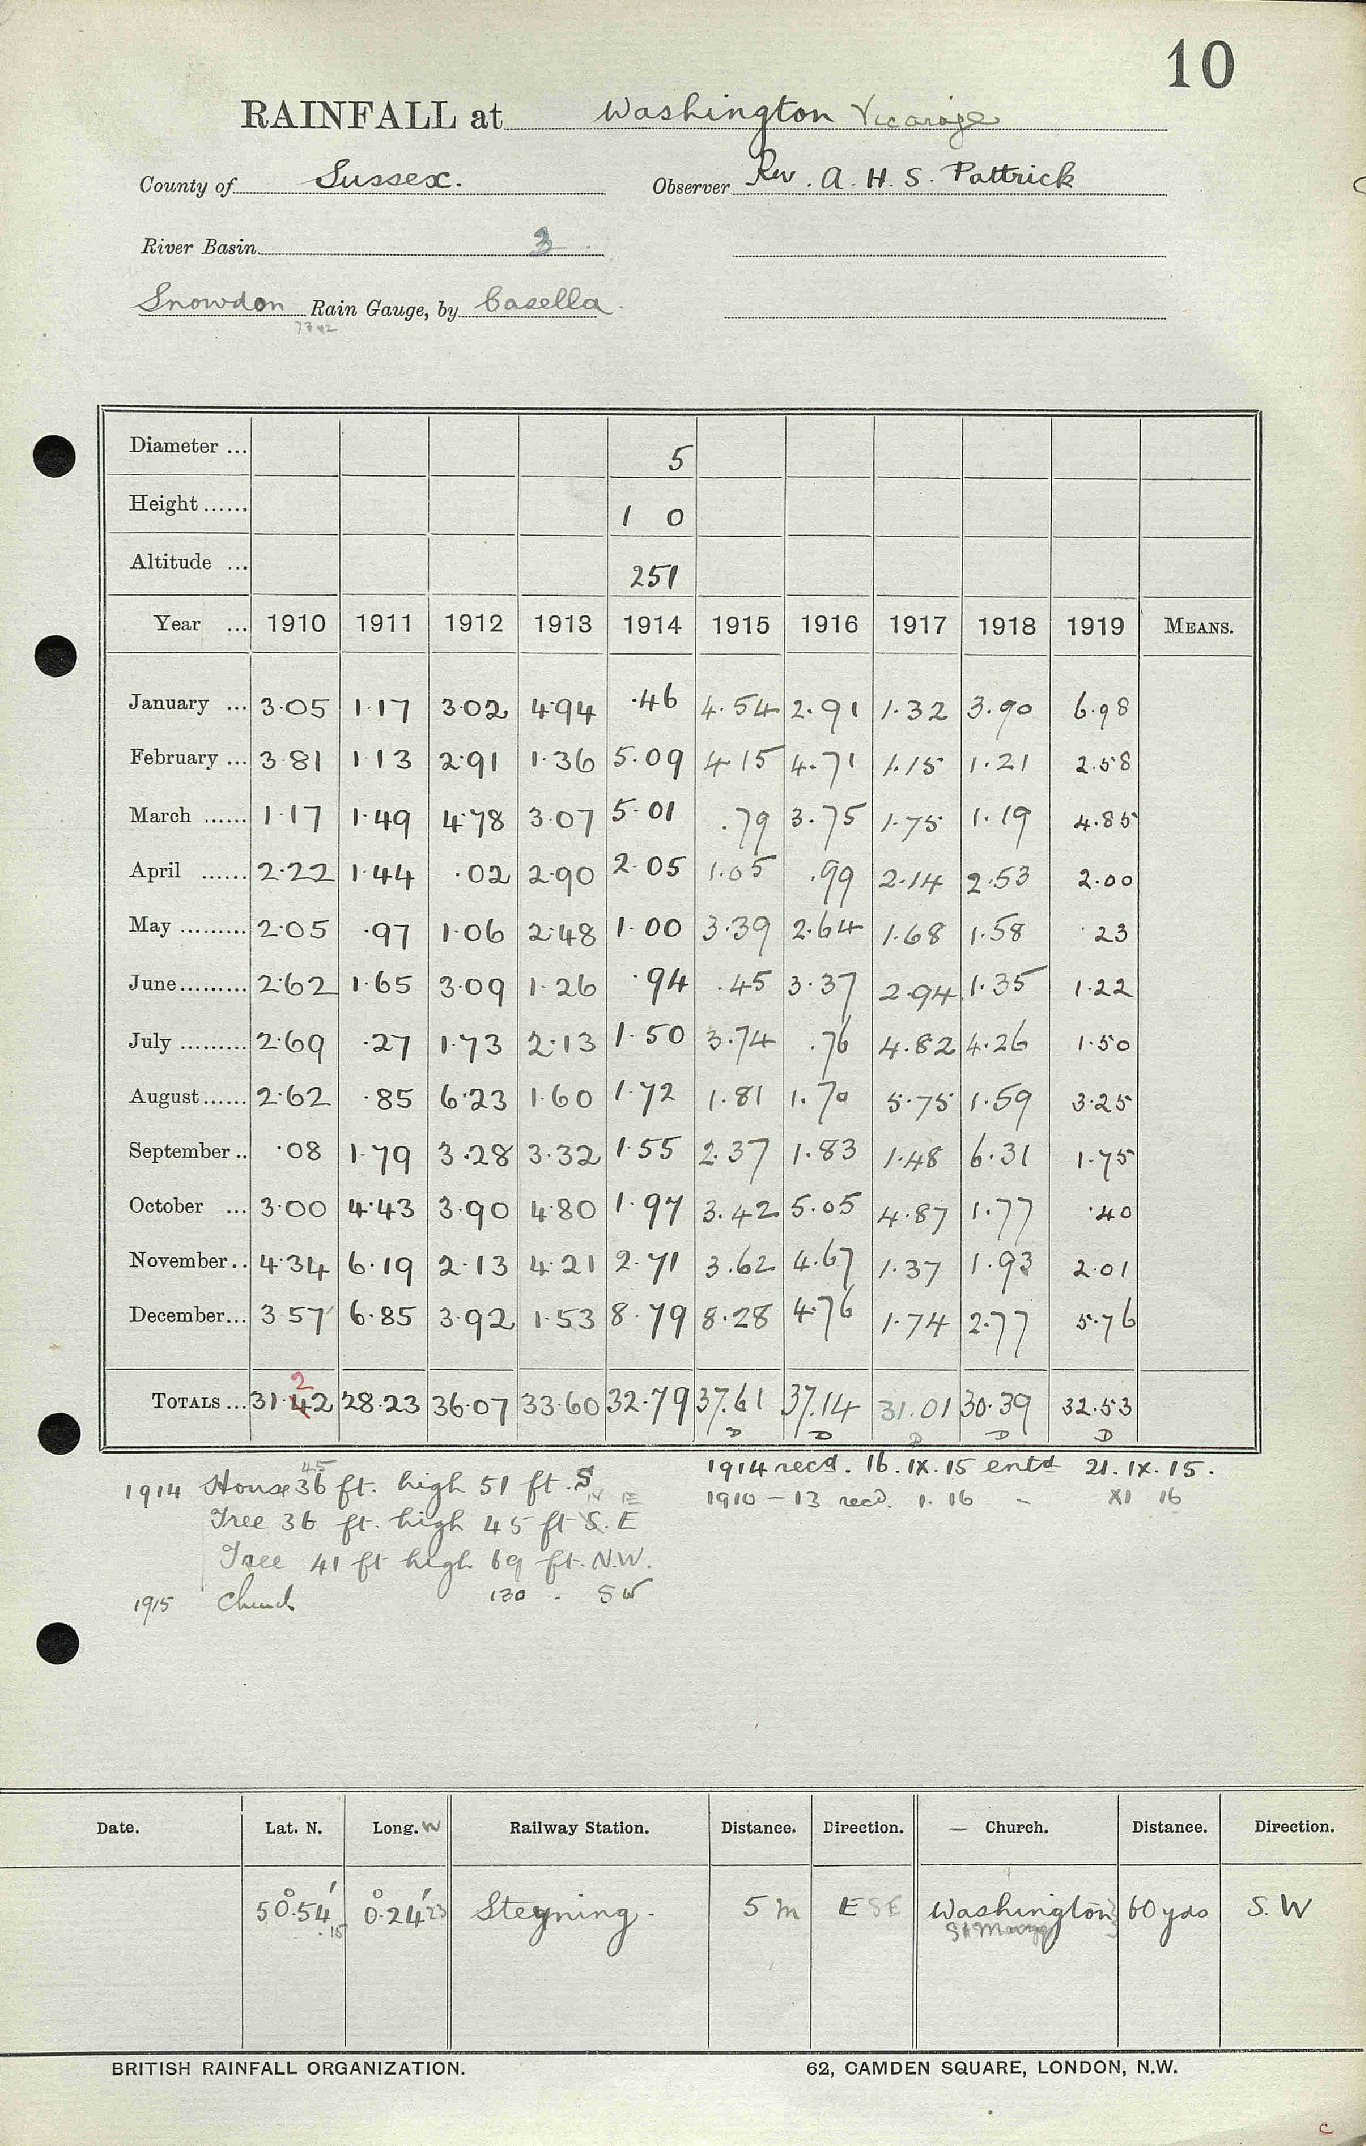 10
RAINFALL at Washington Vicarage
County of Sussex. Observer Rev. A. H. S. Pattrick
River Basin 3
Snowdon Rain Gauge, by Casella
Diameter ... 5
Height ...... 1 0
Altitude ... 251
Year ... 1910 1911 1912 1913 1914 1915 1916 1917 1918 1919 MEANS.
January ... 3·05 1·17 3·02 4·94 ·46 4.54 2.91 1.32 3.90 6.98
February ... 3 81 1·13 2·91 1·36 5.09 4·15 4.71 1.15 1.21 2.58
March ...... 1·17 1·49 4·78 3·07 5·01 .79 3.75 1.75 1.19 4.85
April ...... 2·22 1·44 ·02 2·90 2·05 1.05 .99 2.14 2.53 2.00
May ......... 2·05 ·97 1·06 2·48 1·00 3.39 2.64 1.68 1.58 ·23
June ......... 2·62 1·65 3·09 1·26 ·94 .45 3.37 2.94 1.35 1.22
July ......... 2·69 ·27 1·73 2·13 1·50 3.74 .76 4.82 4.26 1.50
August ...... 2·62 ·85 6·23 1·60 1·72 1.81 1.70 5.75 1.59 3.25
September .. ·08 1·79 3·28 3·32 1·55 2.37 1.83 1.48 6.31 1.75
October ... 3·00 4·43 3·90 4·80 1·97 3.42 5.05 4.87 1.77 ·40
November .. 4·34 6·19 2·13 4·21 2·71 3.62 4.67 1.37 1.93 2.01
December ... 3 57 6·85 3·92 1·53 8·79 8·28 4.76 1.74 2.77 5.76
2
TOTALS ... 31·42 28·23 36·07 33·60 32·79 37.61 37.14 31.01 30.39 32.53
D D D D D
45
1914 House 36 ft. high 51 ft. S 1914 recd. 16. IX. 15 entd 21. IX. 15.
1910 - 13 recd. 1. 16 " XI 16
Tree 36 ft. high 45 ft S. E
Tree 41 ft high 69 ft. N.W.
1915 Church 130 . SW
Date. Lat. N. Long. W Railway Station. Distance. Direction. — Church. Distance. Direction.
50°.54' 15 0°.24' 23 Steyning. 5 m E SE Washington 60 yds S. W
BRITISH RAINFALL ORGANIZATION. 62, CAMDEN SQUARE, LONDON, N.W.
c